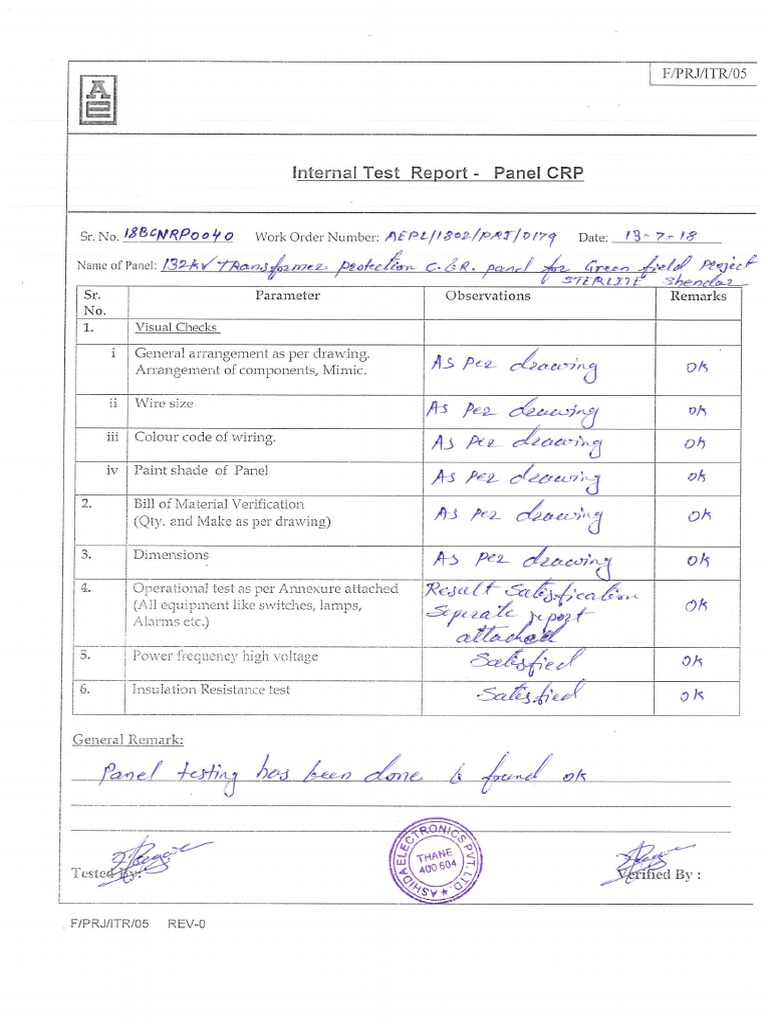 F/PRJ/ITR/05
Internal Test Report - Panel CRP
Sr. No. 18BCNRP0040 Work Order Number: AEPL/1802/PRJ/0179 Date: 13-7-18
Name of Panel: 132kV Transformer protection C.&R. panel for Green field Project
STERLITE Shendra
Sr. No. Parameter Observations Remarks
1. Visual Checks
i General arrangement as per drawing. Arrangement of components, Mimic. As per drawing OK
ii Wire size As per drawing OK
iii Colour code of wiring. As per drawing OK
iv Paint shade of Panel As per drawing OK
2. Bill of Material Verification (Qty. and Make as per drawing) As per drawing OK
3. Dimensions As per drawing OK
4. Operational test as per Annexure attached (All equipment like switches, lamps, Alarms etc.) Result Satisfication Seperate report attached OK
5. Power frequency high voltage Satisfied OK
6. Insulation Resistance test Satisfied OK
General Remark:
Panel testing has been done & found ok
Tested By: Verified By :
ASHIDA ELECTRONICS PVT. LTD.
THANE
400 604
F/PRJ/ITR/05 REV-0